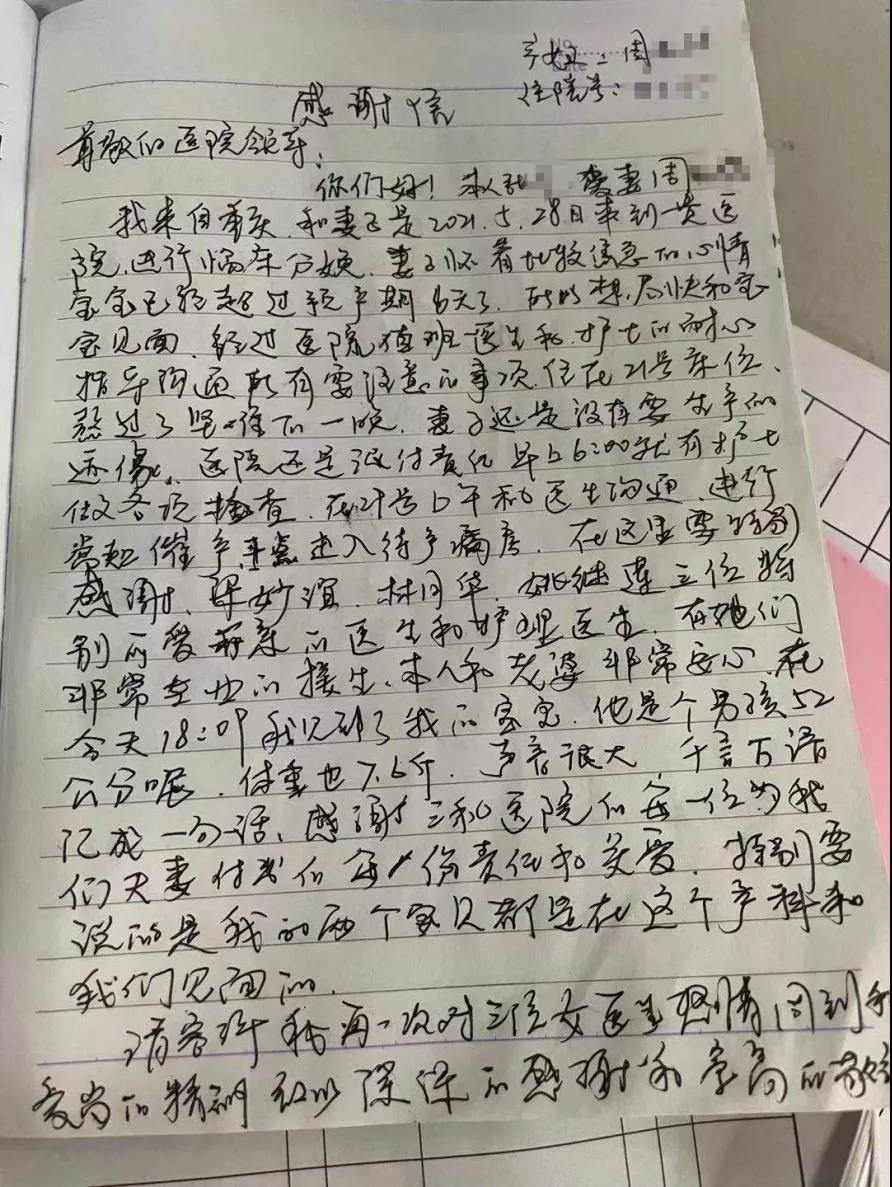 产妇：周
住院号：
No
Date
感谢信
尊敬的医院领导：
你们好！本人 爱妻周
我来自重庆，和妻子是2021.5.28日来到贵医
院，进行临床分娩，妻子怀着比较焦急的心情
宝宝已经超过预产期6天了，所以想尽快和宝
宝见面，经过医院值班医生和护士的耐心
指导沟通所有要注意的事项，住在21号床位、
熬过了坚难的一晚，妻子还是没有要生产的
迹像。医院还是很付责化早上6:00就有护士
做各项检查，在 号上午和医生沟通，进行
催产 进入待产病房，在这里要特别
感谢，梁妙 ，林月华，姚继莲三位特
别的爱 的医生和护理医生，有她们
非常专业的接生、本人和老婆非常安心，在
今天18:09我见到了我的宝宝，他是个男孩52
公分呢，体重也7.6斤，声音很大，千言万语
汇成一句话、感谢三和医院的每一位为我
们夫妻付出的每一份责任和关爱，特别要
说的是我的两个宝贝都是在这个产科和
我们见面的。
请容许我再一次对三位女医生热情周到和
高尚的精神致以深深的感谢和崇高的敬意